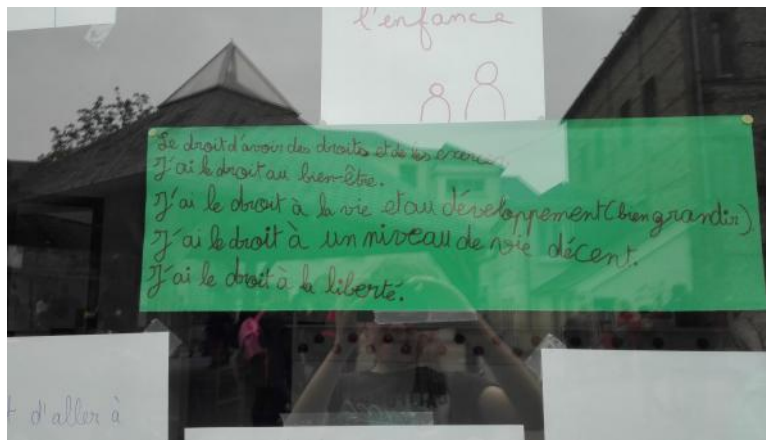 l'enfance
Le droit d'avoir des droits et de les exercer
J'ai le droit au bien-être.
J'ai le droit à la vie et au développement (bien grandir).
J'ai le droit à un niveau de vie décent.
J'ai le droit à la liberté.
d'aller à